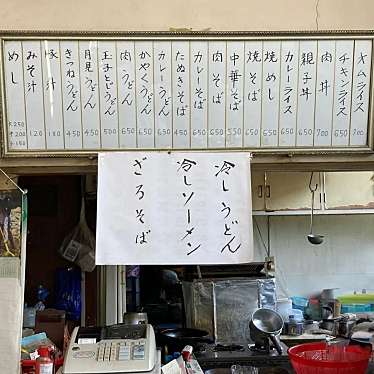 オムライス 700
チキンライス 650
肉丼 700
親子丼 650
カレーライス 650
焼めし 650
焼そば 650
中華そば 550
肉そば 650
カレーそば 650
たぬきそば 450
カレーうどん 650
かやくうどん 650
肉うどん 650
玉子とじうどん 500
月見うどん 450
きつねうどん 450
豚汁 180
みそ汁 120
めし 大250 中200 小150
冷しうどん
冷しソーメン
ざるそば